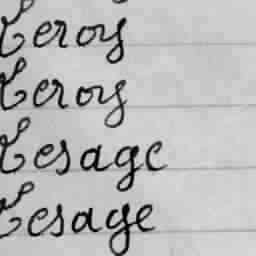 Leroy
Leroy
Lesage
Lesage